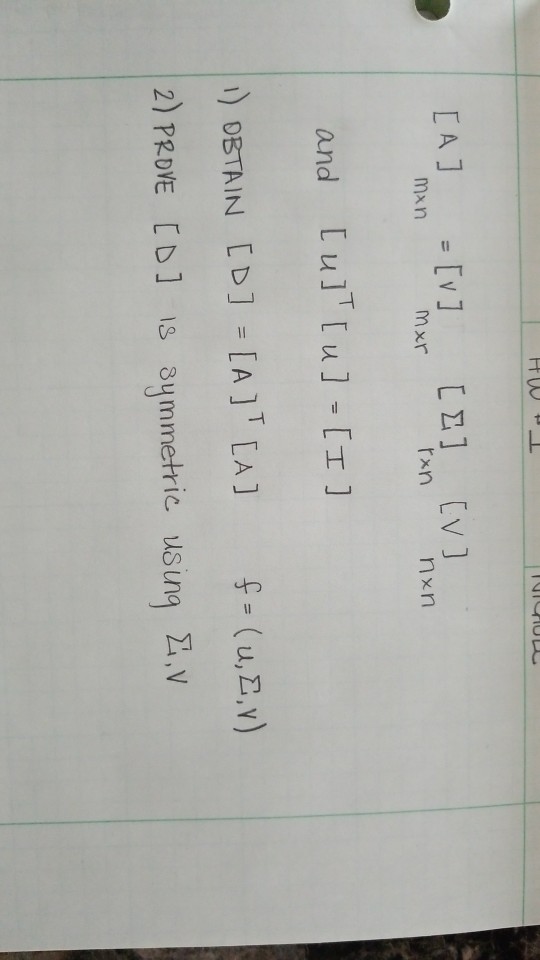 HW #1
[A] m×n = [V] m×r [Σ] r×n [V] n×n
and [u]ᵀ [u] = [I]
1) OBTAIN [D] = [A]ᵀ [A] f = (u, Σ, V)
2) PROVE [D] is symmetric using Σ, V